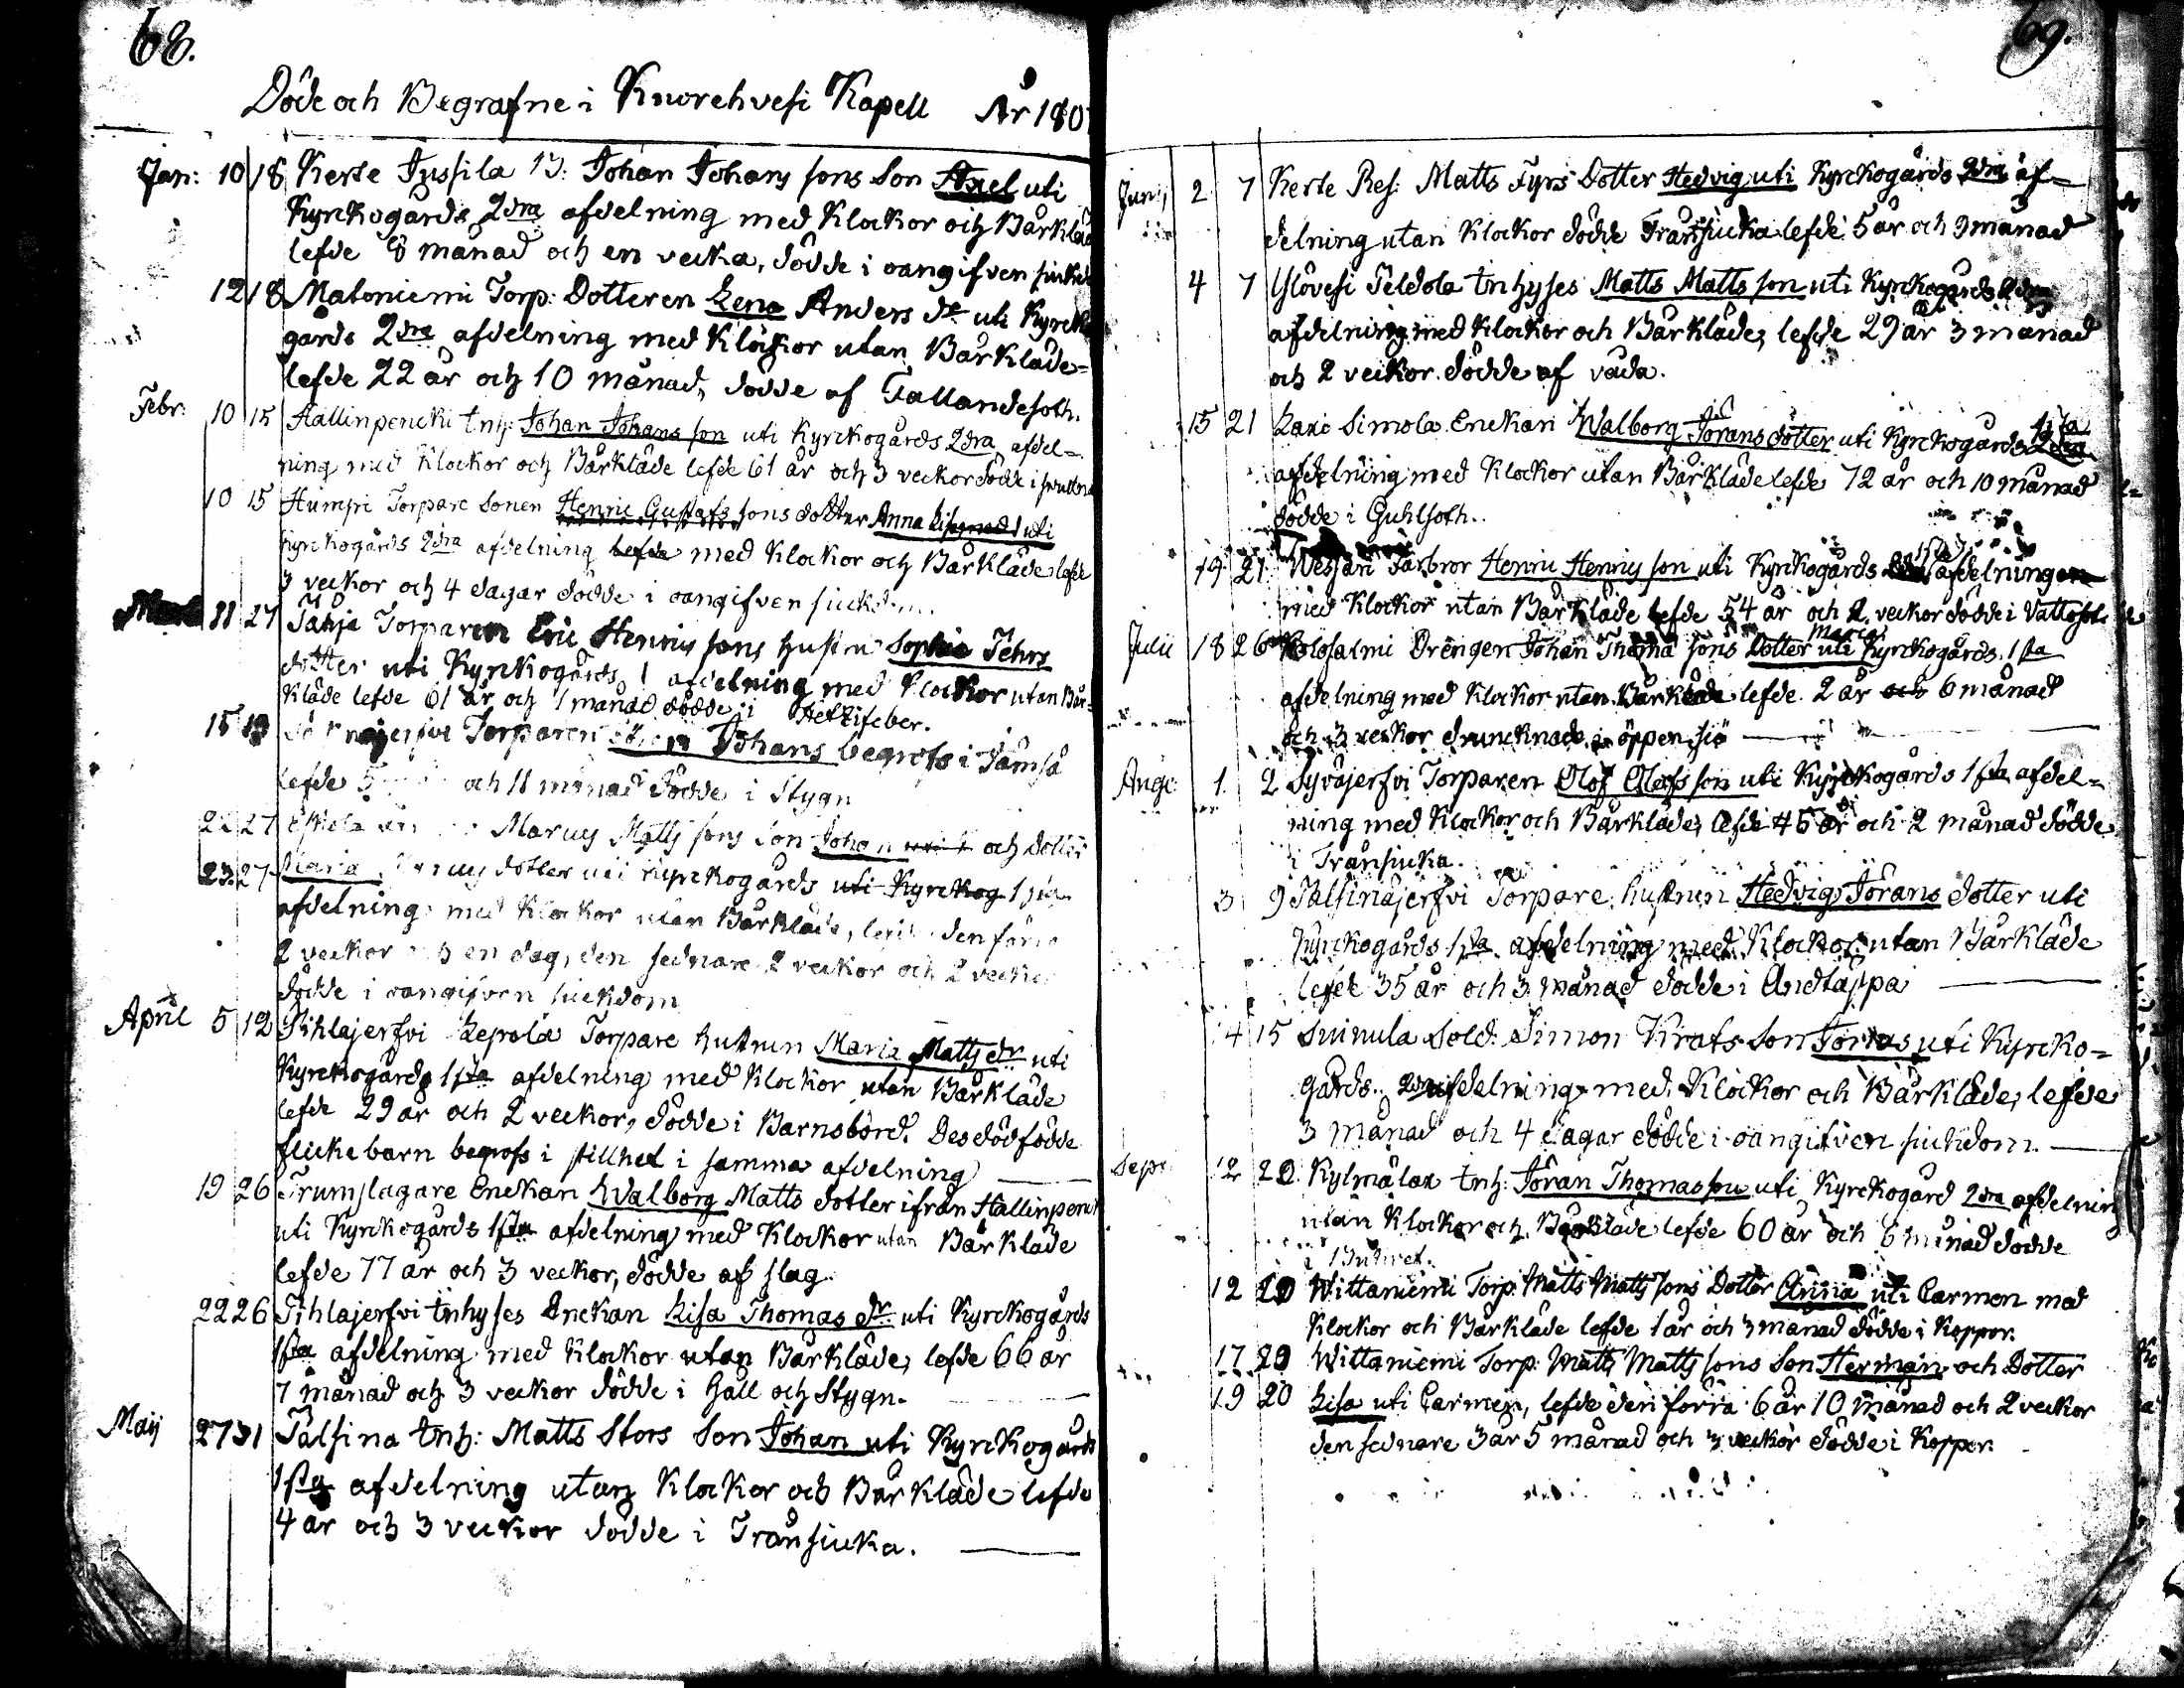 68.
Döde och Begrafne i Knorehvesi Kapell År 180
Jan: 10 18 Kerte Jussila B: Johan Johans sons Son Axel uti
Kyrckogårds 2dra afdelning med Klockor och Bårkläde
lefde 8 månad och en vecka, dödde i oangifven siukd
12 18 Matoniemi Torp: Dotteren Lena Anders dr uti Kyrcko
gårds 2dra afdelning med Klockor utan Bårkläde
lefde 22 år och 10 månad, dödde af Fallandesoth.
Febr: 10 15 Hallinpencki Inh: Johan Johans son uti Kyrckogårds 2dra afdel=
ning med Klockor och Bårkläde lefde 61 år och 3 veckor dödde i
10 15 Humpi Torpare Sonen Henric Gustafs sons dotter Anna Lisa uti
Kyrckogårds 2dra afdelning lefde med Klockor och Bårkläde lefde
3 veckor och 4 dagar dödde i oangifven siuckdom
11 27 Torparen Eric Henrics sons hustru Sophia
dotter uti Kyrckogårds 1 afdelning med Klockor utan Bår=
kläde lefde 61 år och 1 månad dödde i Hettifeber.
15 19 Torparen Johans begrofs i Jämsä
lefde 5 och 11 månad dödde i Stygn
22 27 Marcus Matts sons Son Johan uti och dotter
23 27 Maria dotter uti Kyrckogårds uti Kyrckog 1sta
afdelning med Klockor utan Bårkläde, den förra
2 veckor och en dag, den sednare 2 veckor och 2 vecka
dödde i oangifven siuckdom
April 5 12 Pihlajerfvi Lepola Torpare hustrun Maria Matts dr uti
Kyrckogårds 1sta afdelning med Klockor utan Bårkläde
lefde 29 år och 2 veckor, dödde i Barnsbörd. Des dödfödde
flickebarn begrofs i stillhet i samma afdelning
19 26 Trumslagare Enckan Walborg Matts dotter ifrån Hallinpenck
uti Kyrckogårds 1sta afdelning med Klockor utan Bårkläde
lefde 77 år och 3 veckor, dödde af slag.
22 26 Pihlajerfvi Inhyses Enckan Lisa Thomas dr uti Kyrckogårds
1sta afdelning med Klockor utan Bårkläde, lefde 66 år
7 månad och 3 veckor dödde i Håll och Stygn.
Maij 27 31 Pälsina Inh: Matts Stors Son Johan uti Kyrckogårds
1sta afdelning utan Klockor och Bårkläde lefde
4 år och 3 veckor dödde i Transiuka.
69.
Junii 2 7 Kerte Res: Matts Fyrs Dotter Hedvig uti Kyrckogårds 2dra af=
delning utan Klockor dödde Transiucka lefde 5 år och 9 månad
4 7 Ylövesi Peldola Inhyses Matts Matts son uti Kyrckogårds 2dra
afdelning med Klockor och Bårkläde, lefde 29 år 3 månad
och 2 veckor. dödde af våda.
15 21 Simola Enckan Walborg Jörans dotter uti Kyrckogårds 2dra 1sta
afdelning med Klockor utan Bårkläde lefde 72 år och 10 månad
dödde i Guhlsoth.
19 21 Farbror Henric Henrics son uti Kyrckogårds 1sta afdelningen
med Klockor utan Bårkläde lefde 54 år och 2 veckor dödde i Vattusot
Julii 18 26 Kolosalmi Drengen Johan Thoma sons Dotter Maria uti Kyrckogårds 1sta
afdelning med Klockor utan Bårkläde lefde 2 år och 6 månad
och 3 veckor drunknade i öppen siö
Aug: 1 2 Syväjerfvi Torparen Olof Olofs son uti Kyrckogårds 1sta afdel=
ning med Klockor och Bårkläde, lefde 45 år och 2 månad dödde
i Transiuka.
3 9 Palsinajerfvi Torpare hustrun Hedvig Jörans dotter uti
Kyrckogårds 1sta afdelning med Klockor utan Bårkläde
lefde 35 år och 3 månad dödde i Andtäppa
14 15 Suinula Sold: Simon Krafs Son uti Kyrcko=
gårds 2dra afdelning med Klockor och Bårkläde, lefde
3 månad och 4 dagar dödde i oangifven siuckdom.
Sept: 12 20 Inh: Jöran Thomasson uti Kyrckogård 2dra afdelnin
utan Klockor och Bårkläde lefde 60 år och 6 månad dödde
12 20 Wittaniemi Torp: Matts Matts sons Dotter Anna uti Carmen med
Klockor och Bårkläde lefde 1 år och 3 månad dödde i Koppor.
17 20 Wittaniemi Torp: Matts Matts sons Son Herman och Dotter
19 20 Lisa uti Carmen, lefde den förra 6 år 10 månad och 2 veckor
den sednare 3 år 5 månad och 3 veckor dödde i Koppor.